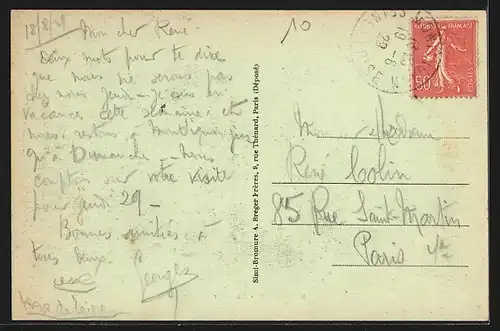 18/8/29
Mon cher René
10
Deux mots pour te dire
que nous ne serons pas
chez nous jeudi - je suis en
vacances cette semaine et
nous restons à jus
qu'à Dimanche - nous
comptons sur votre visite
pour jeudi 29 -
Bonnes amitiés à
tous deux.
Georges
Simi-Bromure A. Breger Frères, 9, rue Thénard, Paris (Déposé)
REPUBLIQUE FRANÇAISE
50
POSTES
Madame
René Colin
85 Rue Saint-Martin
Paris